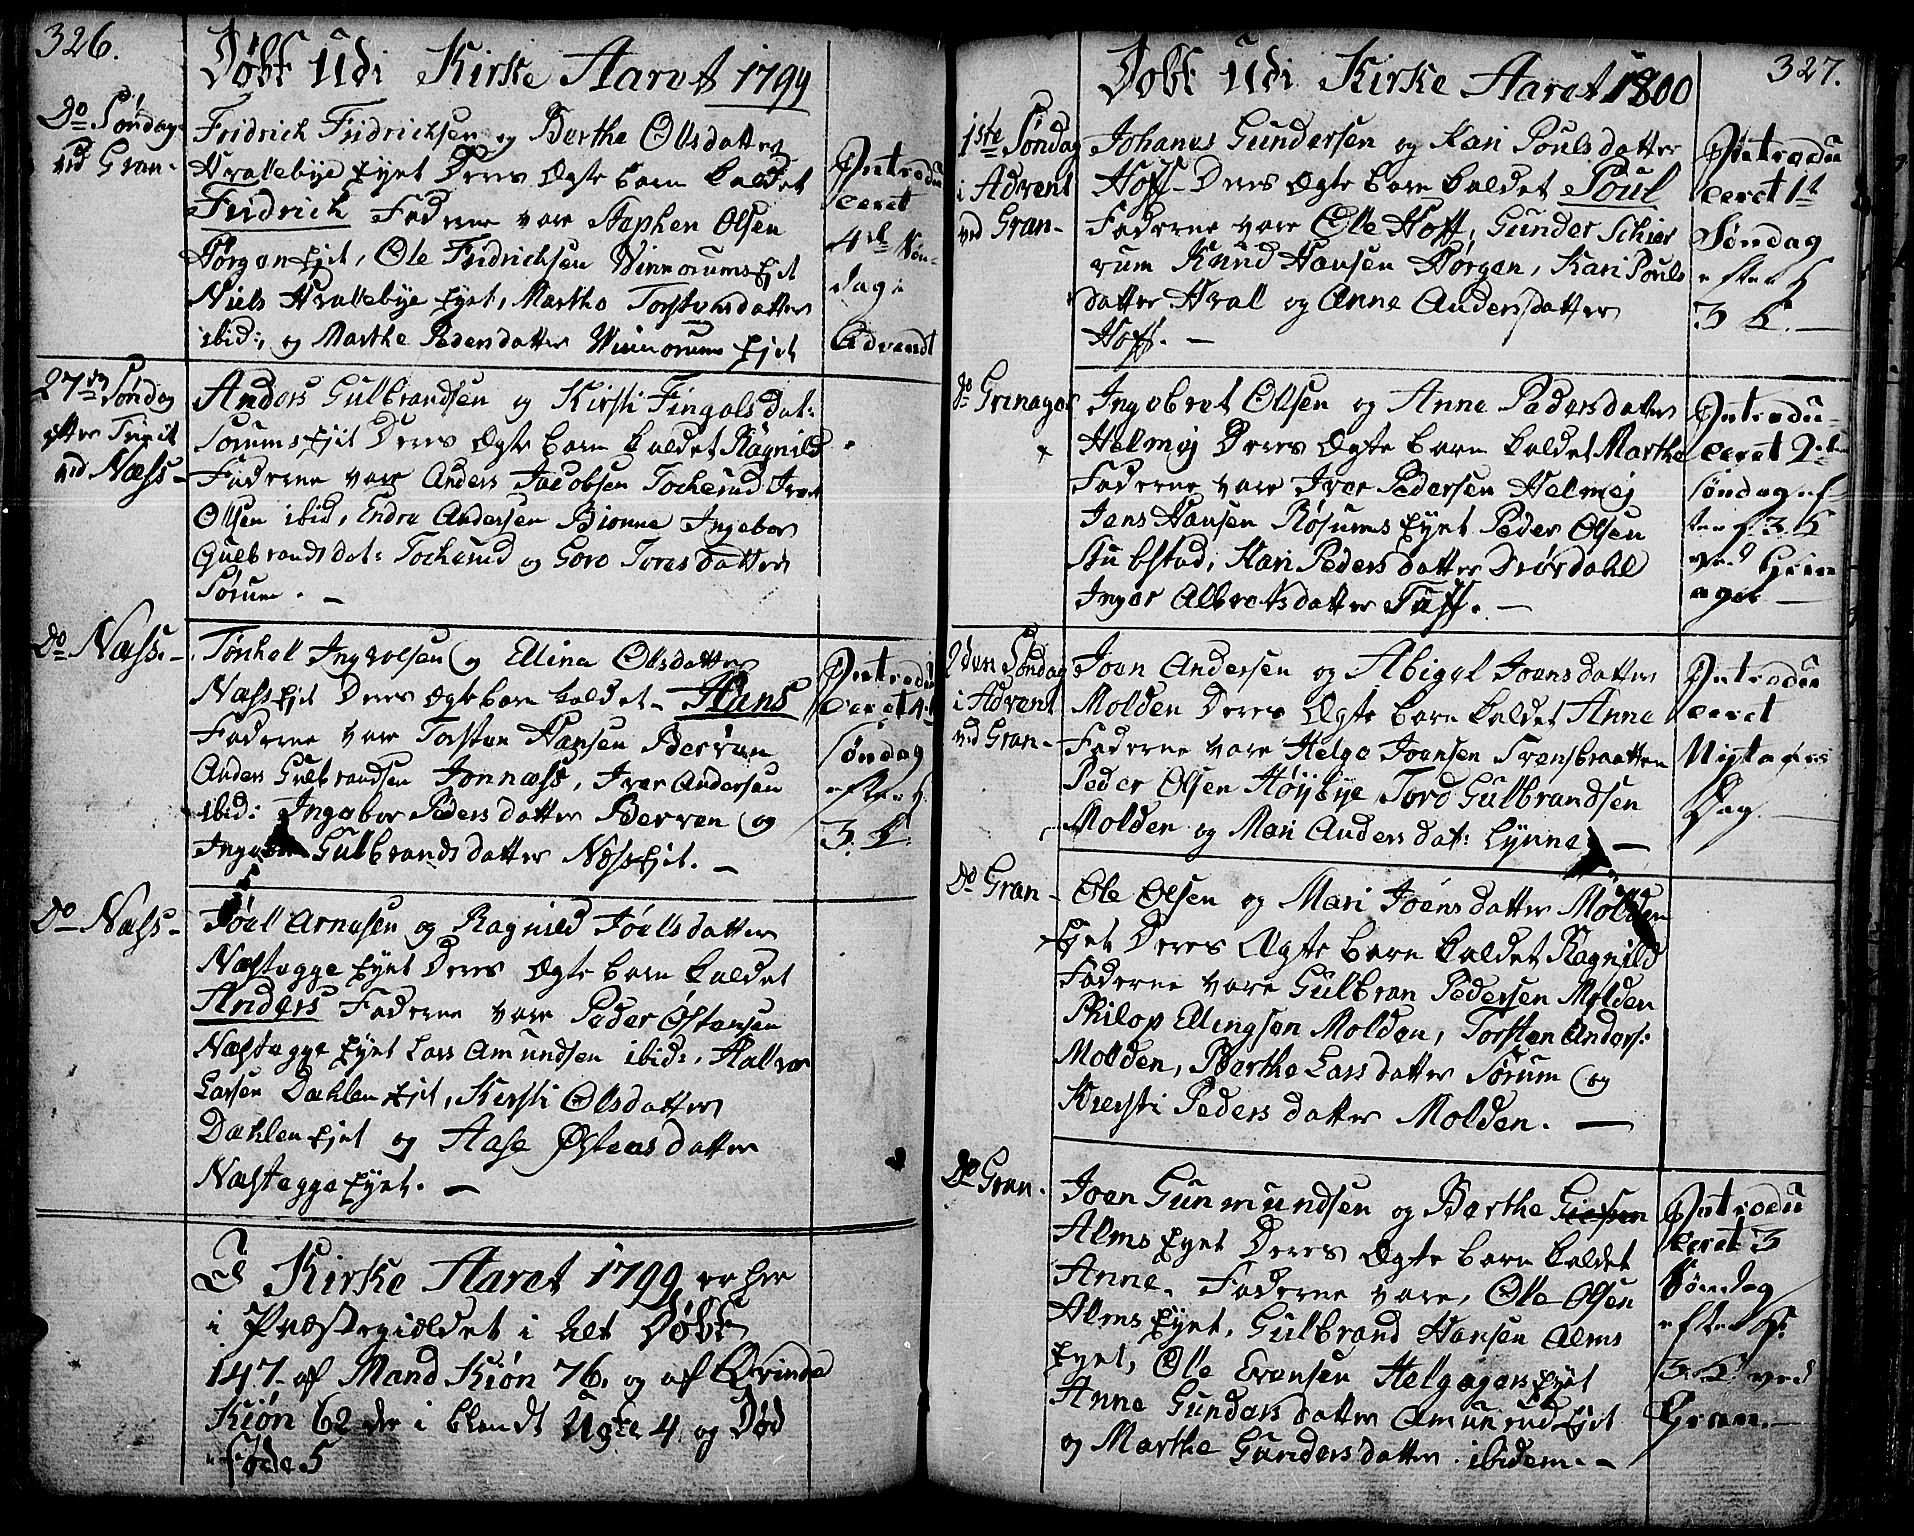 326.
Døbt Udi Kirke Aaret 1799
Do Søndag
ved Gran-
Fridrich Fridrichsen og Berthe Olsdatter
Hvallebye Eyet Deres Ægte barn kaldet
Fridrich Faderne vare Stephen Olsen
Hørgen Ejet, Ole Fridrichsen Winnorums Ejet
Niels Hvallebye Eyet, Marthe Torstensdatter
ibid: og Marthe Pedersdatter Winnorums Ejet
Introdu
ceret
4de Søn-
dag i
Advendt
27de Søndag
efter Trinit
ved Næss-
Anders Gulbrandsen og Kirsti Fingalsdat:
Sorums Ejet Deres Ægte barn kaldet Ragnild
Faderne vare Anders Jacobsen Tocherud Iver
Olsen ibid, Endre Andersen Bionne Ingebor
Gulbrandsdat: Tocherud og Goro Toresdatter
Sørum. -
Do Næss.-
Tønhell Ingvolsen og Ellina Olsdatter
Næss Ejet Deres Ægte barn kaldet- Hans
Faderne vare Torsten Hansen Berven
Anders Gulbrandsen Jonnæss, Iver Andersen
ibid: Ingebor Pedersdatter Berven og
Ingebor Gulbrandsdatter Næss Ejet. -
Introdu
ceret 4de
Søndag
efter H.
3. K.
Do Næss-
Jøell Arnesen og Ragnild Jøelsdatter
Næstegge Eyet Deres Ægte barn kaldet
Anders Faderne vare Peder Østensen
Næstegge Eyet Lars Amundsen ibid:, Hallvor
Larsen Dæhlen Ejet, Kersti Olsdatter
Dæhlen Ejet og Aase Østensdatter
Næstegge Eyet. -
I Kirke Aaret 1799 er her
i Præstegieldet i Alt Døbt
147. af Mand Kiøn 76. og af Qvinde
Kiøn 62 der i blendt Ugte 4 og Død
Føde 5
Døbt Udi Kirke Aaret 1800
327.
1ste Søndag
i Advent
ved Gran-
Johanes Gundersen og Kari Poulsdatter
Hoff- Deres Ægte barn kaldet Poul
Faderne vare Ole Hoff, Gunder Schier
rum Knud Hansen Hørgen, Kari Pouls
datter Hval og Anne Andersdatter
Hoff. -
Introdu
ceret 1te
Søndag
efter H
3 K. -
Do Grinager
Ingebret Olsen og Anne Pedersdatter
Helmej Deres Ægte barn kaldet Marthe
Faderne vare Iver Pedersen Helmej
Jens Hansen Røsums Eyet Peder Olsen
Stubstad, Kari Pedersdatter Drørdahl
Inger Albretsdatter Tuff. -
Introdu-
ceret 2den
Søndag ef-
ter H 3 K
ved Grin
ager -
2den Søndag
i Advent
ved Gran-
Joen Andersen og Abigel Joensdatter
Molden Deres Ægte barn kaldet Anne
Faderne vare Helge Joensen Svensbraatten
Peder Olsen Høybye, Tord Gulbrandsen
Molden og Mari Andersdat: Lynne -
Introdu
ceret
Nÿtaars
Dag.
Do Gran-
Ole Olsen og Mari Joensdatter Molden
Ejet Deres Ægte barn kaldet Ragnild
Faderne vare Gulbran Pedersen Molden
Philop Ellingsen Molden, Torsten Anders:
Molden, Berthe Larsdatter Sorum og
Kiersti Pedersdatter Molden. -
Do Gran.
Joen Gunmundsen og Berthe
Alms Eyet Deres Ægte barn kaldet
Anne. Faderne vare, Ole Olsen
Alms Eyet, Gulbrand Hansen Alms
Eyet, Ole Evensen Helgagers Eyet
Anne Gundersdatter Amunrud Ejet
og Marthe Gundersdatter ibidem. -
Introdu
ceret 3
Søndag
efter H.
3. K. ved
Gran. -